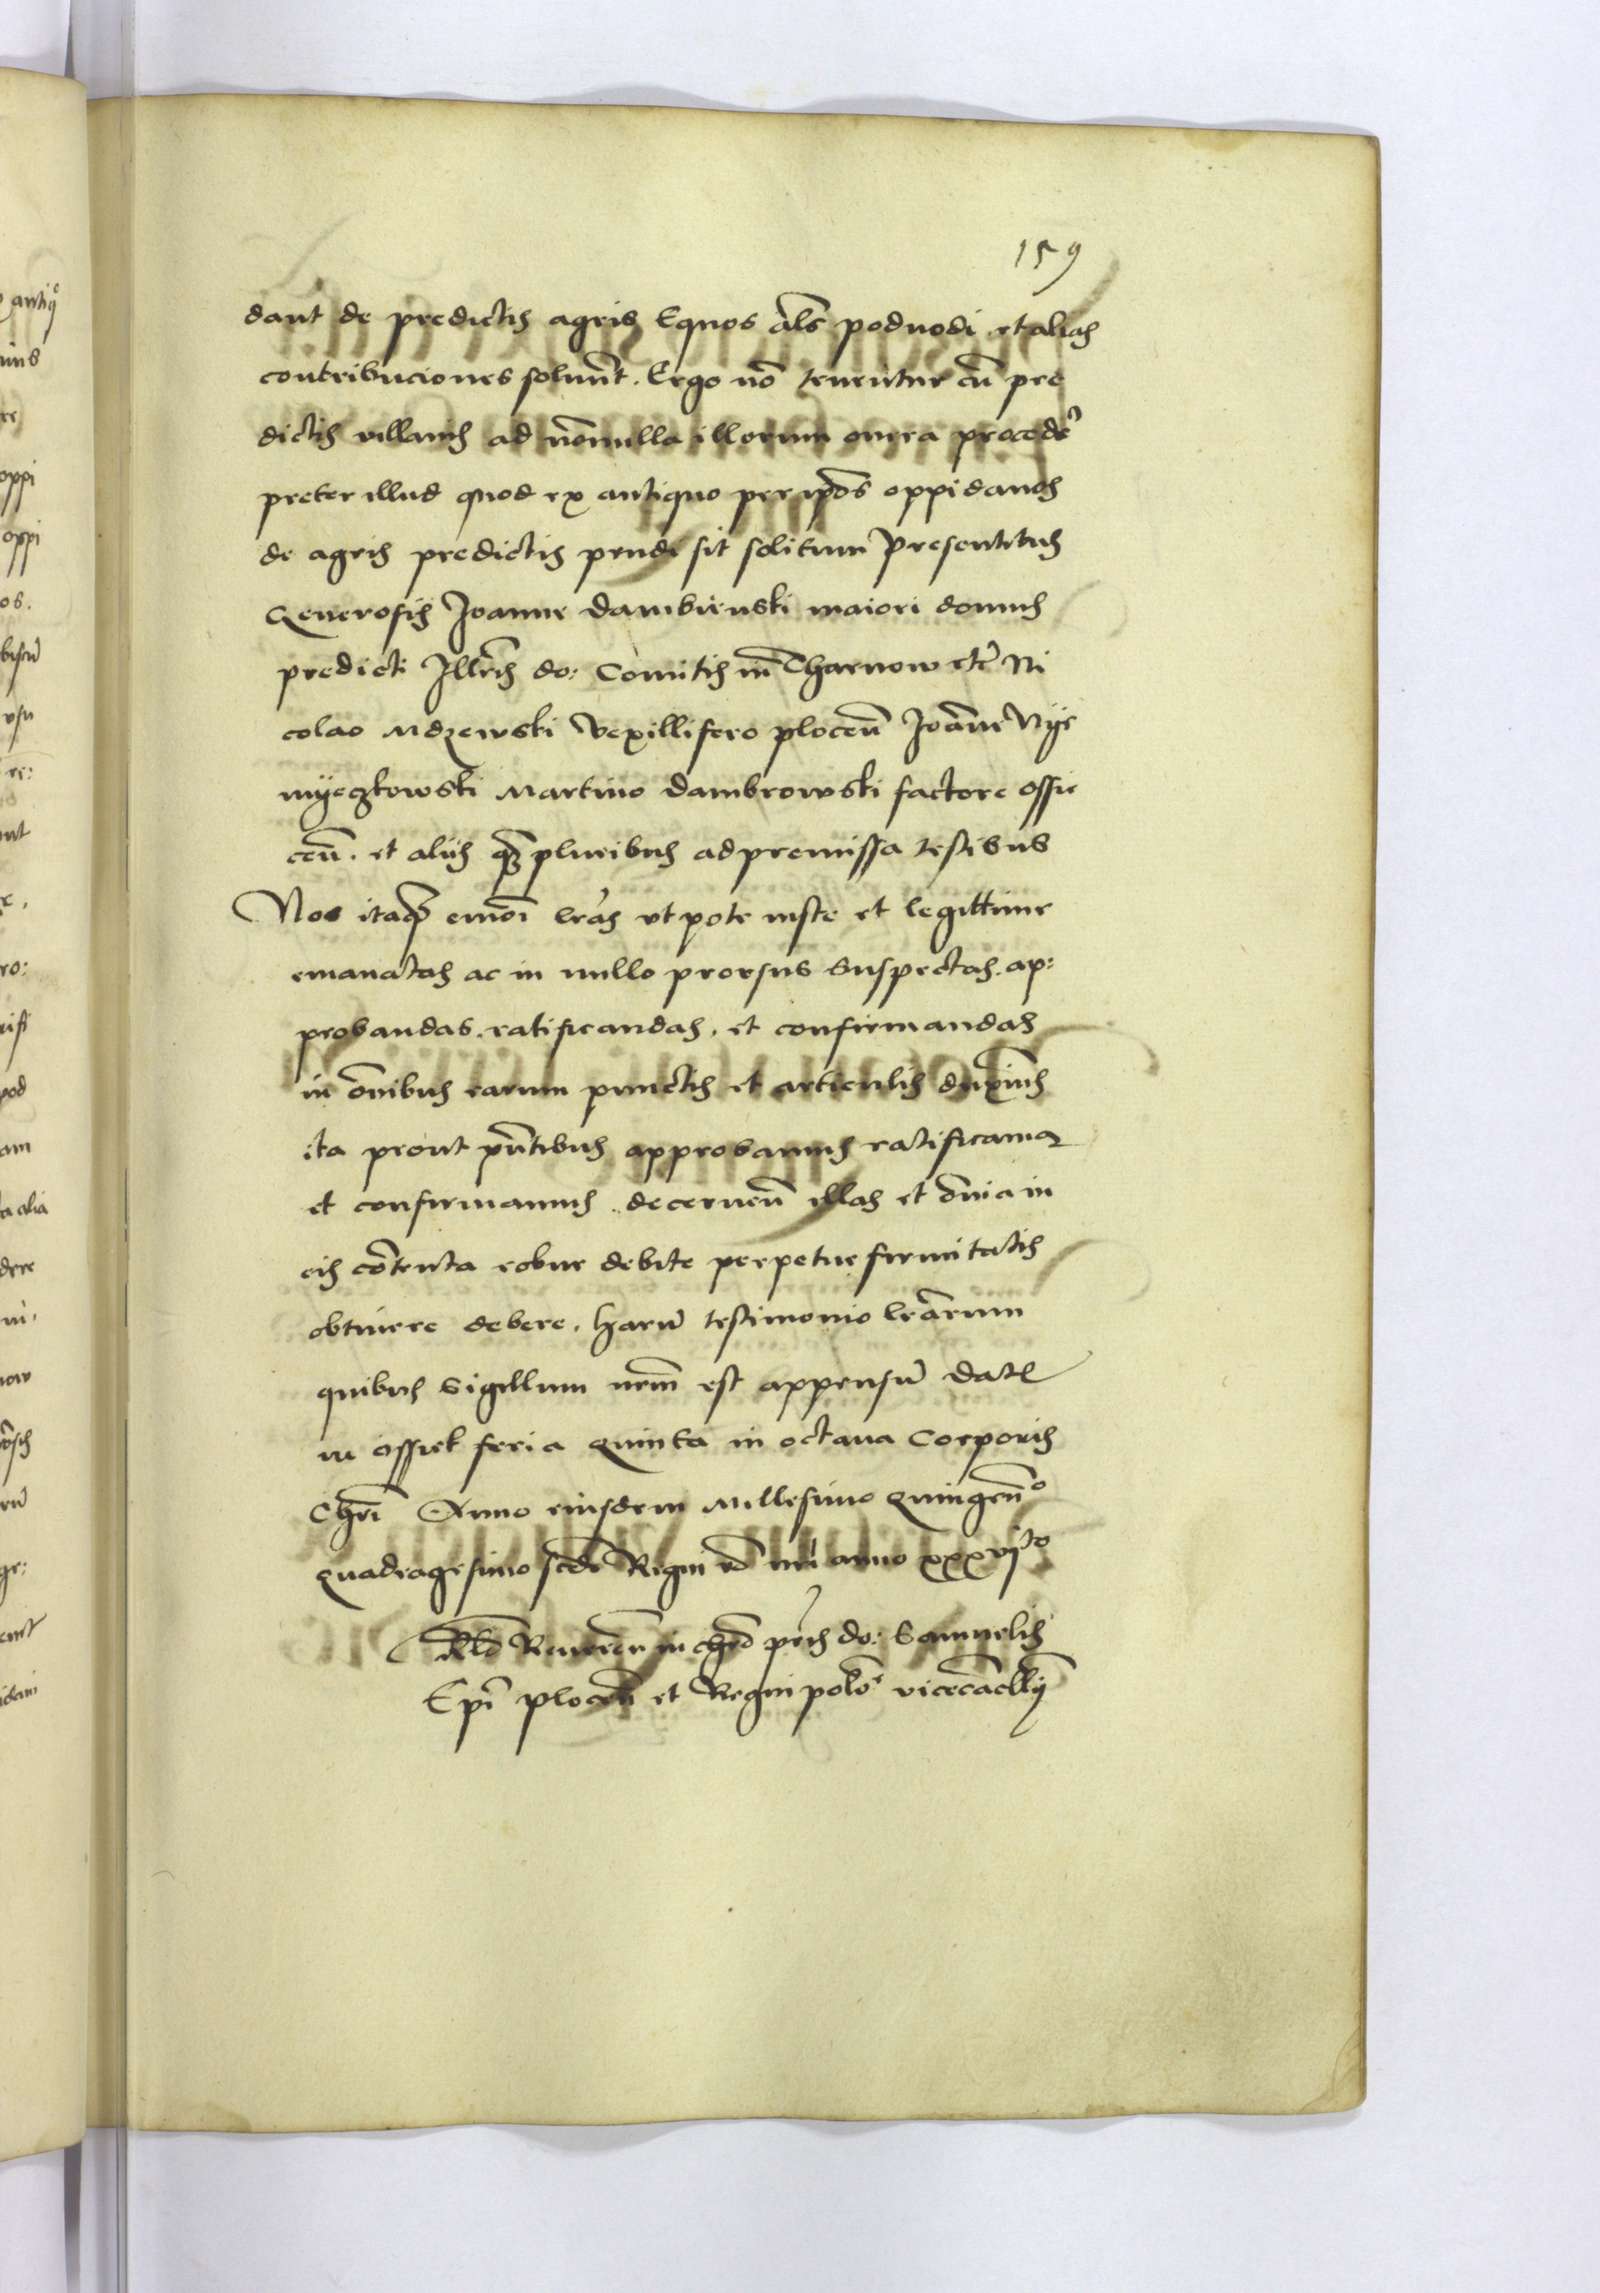 159
dant de predictis agris Equos als podvodi et alias
contribuciones solvunt. Ergo nō tenentur cū pre
dictis villanis ad nōnulla illorum onera procede͛
preter illud quod ex antiquo per ip̄os oppidanos
de agris predictis pendi sit solitum Presentibus
Generosis Joanne Dambienski maiori domus
predicti Illr̄is do: Comitis in Tharnow etc̄ Ni
colao Mdzewski Vexillifero plocen̄ Joāne Nye
myeczkowski Martino Dambrowski factore Ossie
cen̄. et aliis qȝ pluribus ad premissa testibus
Nos itaqȝ lr̄as ut pote iuste et legittime
emanatas ac in nullo prorsus suspectas. ap:
probandas. ratificandas. et confirmandas
in ōnibus earum punctis et articulis duximus
ita prout pn̄tibus approbamus ratificamus
et confirmamus. decernen̄ illas et ōnia in
eis cōtenta robur debite perpetue firmitatis
obtinere debere. harū testimonio lr̄arum
quibus Sigillum nr̄m est appensū Dat̄
in Ossiek feria Quinta in octava Corporis
Chr̄i Anno eiusdem Millesimo Quingen̄o
Quadragesimo scd̄o Regni vō nr̄i anno xxxvjto
Rēō Reveren̄ in chrō pr̄is do: Samuelis
Ep̄i plocen̄ et Regni polō vicecācellȳ